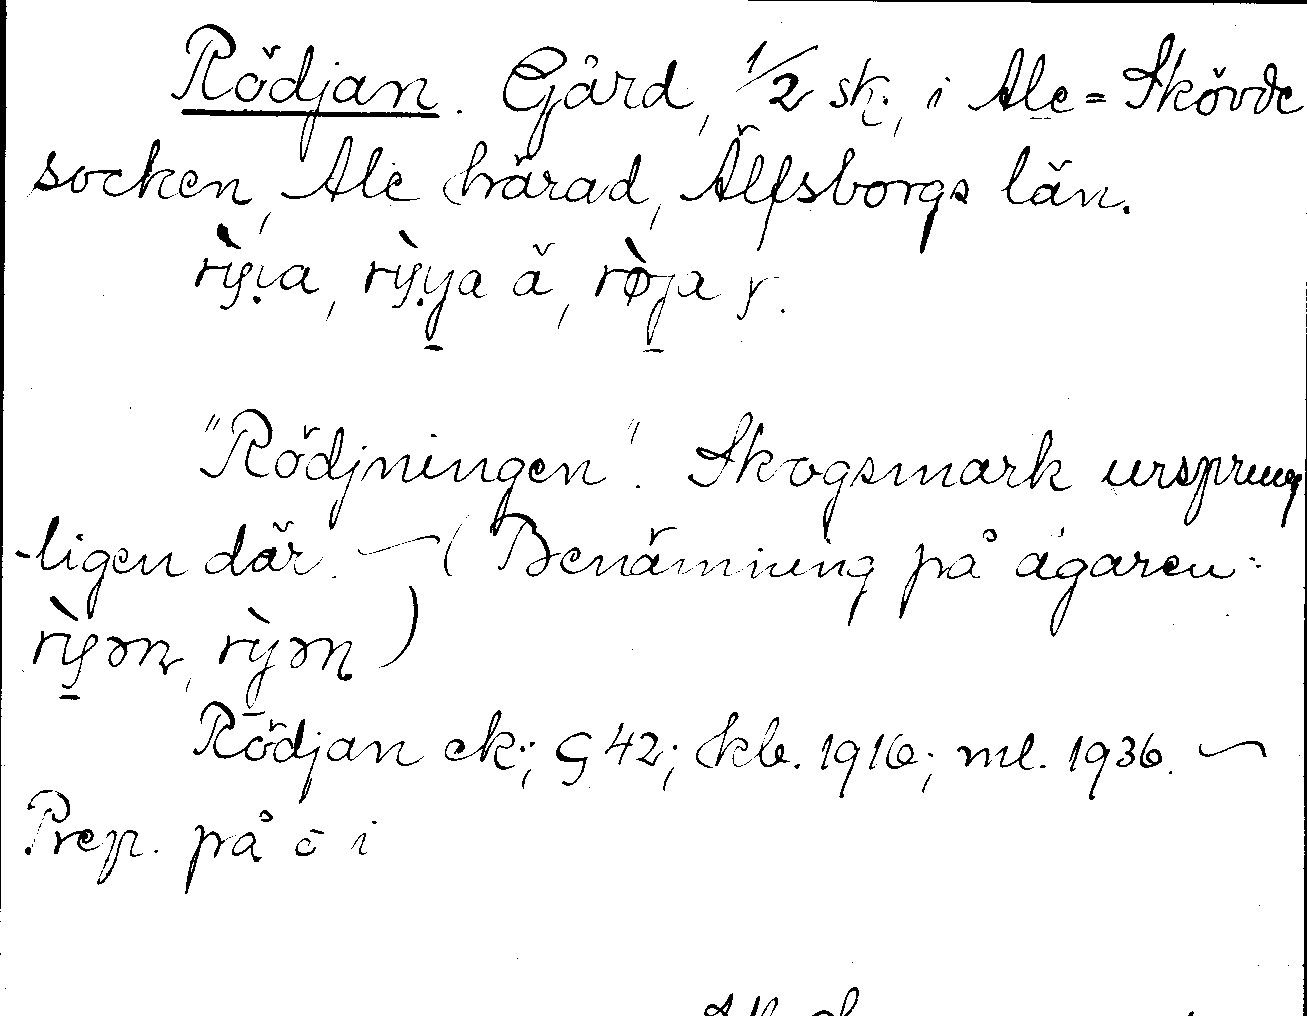 Rödjan. Gård, 1/2 sk., i Ale-Skövde
socken, Ale härad, Älfsborgs län.
"Rödjningen". Skogsmark ursprung
-ligen där. — (Benämning på ägaren:
Rödjan ek.; G 42; kb. 1916; ml. 1936. —
Prep. på o i